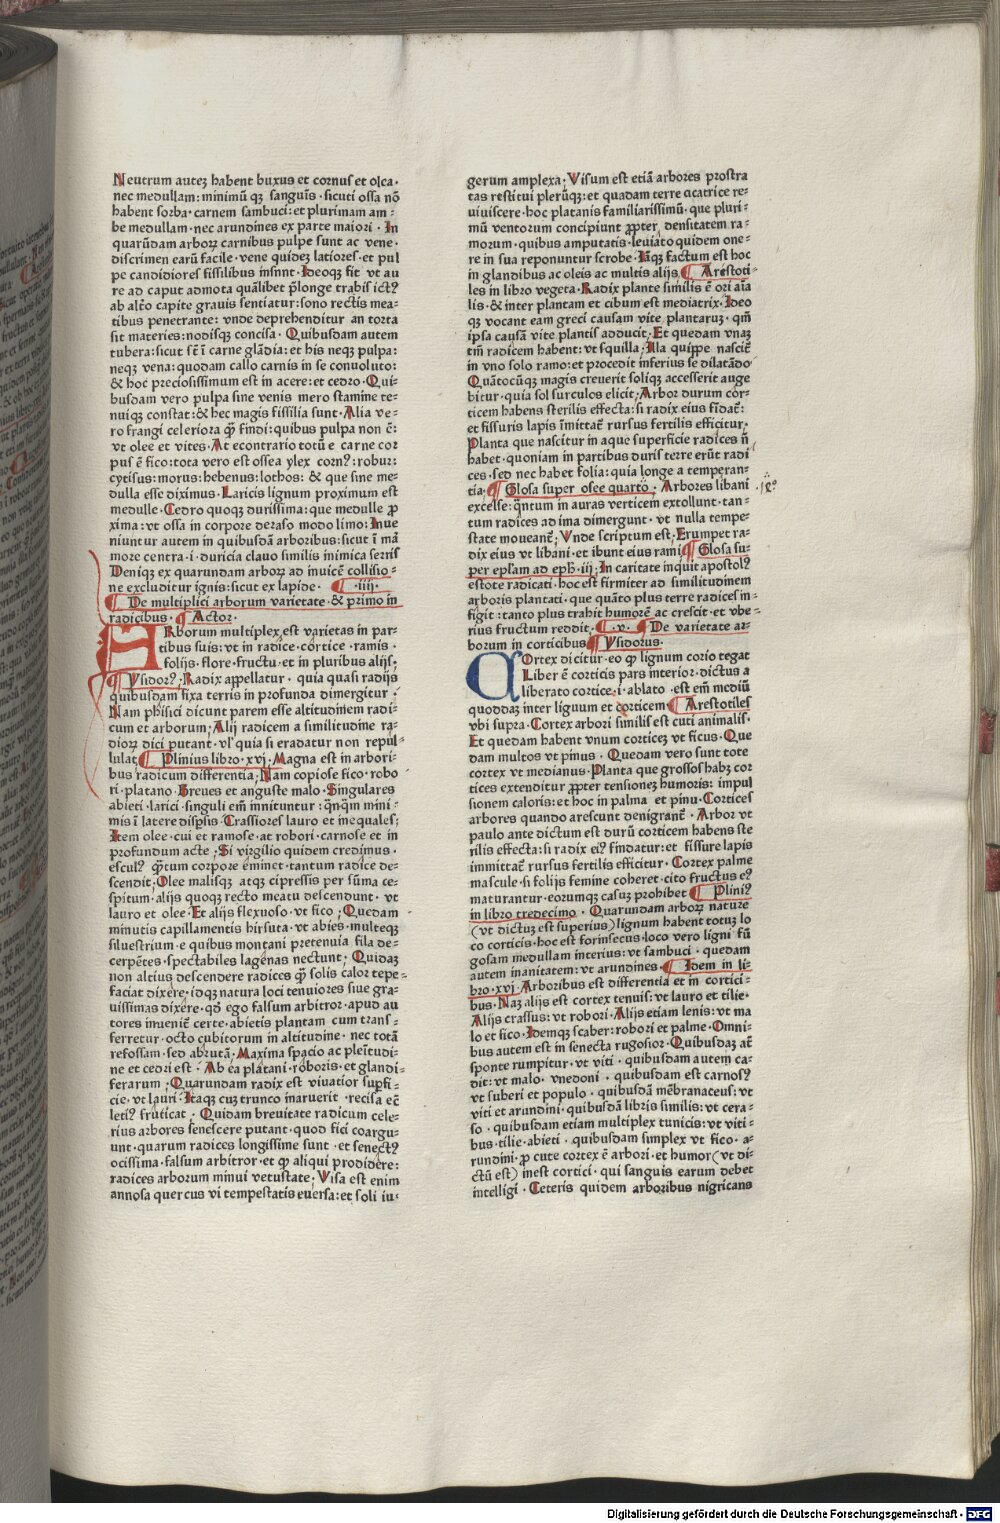 Neutrum autez habent buxus et cornus et olea·
nec medullam: minimū qz sanguis· sicuti ossa nō
habent sorba· carnem sambuci: et plurimam am⸗
be medullam· nec arundines ex parte maiori· In
quarūdam arboꝝ carnibus pulpe sunt ac vene·
discrimen earū facile· vene quidez latiores· et pul
pe candidiores fissilibus insunt· Ideoqꝫ fit vt au
re ad caput admota quālibet p̄longe trabis ictꝰ
ab altō capite grauis sentiatur: sono rectis mea⸗
tibus penetrante: vnde deprehenditur an torta
sit materies: nodisqꝫ concisa· Quibusdam autem
tubera: sicut sē ī carne glādia: et his neqꝫ pulpa:
neqꝫ vena: quodam callo carnis in se conuoluto:
& hoc preciosissimum est in acere: et cedro· Qui⸗
busdam vero pulpa sine venis mero stamine te⸗
nuiqꝫ constat: & hec magis fissilia sunt· Alia ve⸗
ro frangi celeriora ꝙ̄ findi: quibus pulpa non ē:
vt olee et vites· At econtrario totū e carne cor
pus ē fico: tota vero est ossea ylex cornꝰ: robur:
cytisus: morus: hebenus: lothos: & que sine me⸗
dulla esse diximus· Laricis lignum proximum est
medulle· Cedro quoqꝫ durissima: que medulle ꝓ
xima: vt ossa in corpore deraso modo limo: Inue
niuntur autem in quibusdā arboribus: sicut ī mā
more centra· i· duricia clauo similis inimica serris
Deniqꝫ ex quarundam arboꝝ ad inuicē collisio⸗
ne excluditur ignis: sicut ex lapide· ¶ ·iiij·
¶ De multiplici arborum varietate· & primo in
radicibus· ¶ Actor·
ARborum multiplex est varietas in par⸗
tibus suis: vt in radice· cortice· ramis·
folijs· flore· fructu· et in pluribus alijs;
¶ Ysidorꝰ; Radix appellatur· quia quasi radijs
quibusdam fixa terris in profunda dimergitur;
Nam phisici dicunt parem esse altitudinem radi⸗
cum et arborum; Alij radicem a similitudine ra⸗
dioꝝ dici putant· vl' quia si eradatur non repul⸗
lulat; ¶ Plinius libro· xvj· Magna est in arbori⸗
bus radicum differentia; Nam copiose fico· robo
ri· platano· Breues et anguste malo· Singulares
abieti· larici· singuli em̄ innituntur: qn̄qm̄ mini⸗
mis ī latere disp̄sis· Crassiores lauro et inequales;
Item olee· cui et ramose· at robori· carnose et in
profundum acte; Si virgilio quidem credimus·
esculꝰ q̄tum corpore eminet· tantum radice de⸗
scendit; Olee malisqꝫ atqꝫ cipressis per sūma ce⸗
spitum· alijs quoqꝫ recto meatu descendunt· vt
lauro et olee· Et alijs flexuoso· vt fico; Quedam
minutis capillamentis hirsuta· vt abies· multeqꝫ
siluestrium· e quibus montani pretenuia fila de⸗
cerpētes· spectabiles lagenas nectunt; Quidaꝫ
non altius descendere radices ꝙ̄ solis calor tepe⸗
faciat dixere· idqꝫ natura loci tenuiores siue gra⸗
uissimas dixere· qō ego falsum arbitror· apud au
tores inuenit̄ certe· abietis plantam cum trans⸗
ferretur· octo cubitorum in altitudine· nec totā
refossam· sed abrutā· Maxima spacio ac plenitudi⸗
ne et cedri est· Ab ea platani· roboris· et glandi⸗
ferarum; Quarundam radix est viuatior sup̄fi⸗
cie· vt lauri· Itaqꝫ cuꝫ trunco inaruerit· recisa eē
letiꝰ fruticat· Quidam breuitate radicum cele⸗
rius arbores senescere putant· quod fici coargu⸗
unt· quarum radices longissime sunt· et senectꝰ
ocissima· falsum arbitror· et ꝙ aliqui prodidere:
radices arborum minui vetustate; Visa est enim
annosa quercus vi tempestatis euersa: et soli iu⸗
gerum amplexa; Visum est etiā arbores prostra
tas restitui plerūqꝫ: et quadam terre cicatrice re⸗
viuiscere· hoc platanis familiarissimū· que pluri⸗
mū ventorum concipiunt ꝓpter densitatem ra⸗
morum· quibus amputatis· leuiato quidem one⸗
re in sua reponuntur scrobe· Idqꝫ factum est hoc
in glandibus ac oleis ac multis alijs ¶ Arestoti⸗
les in libro vegeta· Radix plante similis ē ori aīa
lis· & inter plantam et cibum est mediatrix· Ideo
qꝫ vocant eam greci causam vite plantaruꝫ· qm̄
ipsa causā vite plantis adducit; Et quedam vnaꝫ
tm̄ radicem habent: vt squilla; Illa quippe nascit̄
in vno solo ramo: et procedit inferius se dilatādo
Quātocūqꝫ magis creuerit soliqꝫ accesserit auge
bitur· quia sol surculos elicit; Arbor durum cor⸗
ticem habens sterilis effecta: si radix eius fīdat̄:
et fissuris lapis īmittat̄ rursus fertilis efficitur;
Planta que nascitur in aque superficie radices n̄
habet· quoniam in partibus duris terre erūt radi
ces· sed nec habet folia: quia longe a temperan⸗
tia· ¶ Glosa super osee quarto· Arbores libani
excelse: q̄ntum in auras verticem extollunt· tan⸗
tum radices ad ima dimergunt· vt nulla tempe⸗
state moueant̄; Vnde scriptum est; Erumpet ra⸗
dix eius vt libani· et ibunt eius rami ¶ Glosa su⸗
per ep̄lam ad eph· iij; In caritate inquit apostolꝰ
estote radicati· hoc est firmiter ad similitudinem
arboris plantati· que quāto plus terre radices in⸗
figit: tanto plus trahit humorē ac crescit· et vbe⸗
rius fructum reddit· ¶ ·v· ¶ De varietate ar⸗
borum in corticibus ¶ Ysidorus·
COrtex dicitur· eo ꝙ lignum corio tegat
Liber ē corticis pars interior· dictus a
liberato cortice· i· ablato· est em̄ mediū
quoddaꝫ inter lignum et corticem ¶ Arestotiles
vbi supra· Cortex arbori similis est cuti animalis·
Et quedam habent vnum corticeꝫ vt ficus· Que
dam multos vt pinus· Quedam vero sunt tote
cortex vt medianus· Planta que grossos habꝫ cor
tices extenditur ꝓpter tensioneꝫ humoris: impul
sionem caloris: et hoc in palma et pinu· Cortices
arbores quando arescunt denigrant̄· Arbor vt
paulo ante dictum est durū corticem habens ste
rilis effecta: si radix eiꝰ findatur: et fissure lapis
immittat̄ rursus fertilis efficitur· Cortex palme
mascule· si folijs femine coheret· cito fructus eꝰ
maturantur· eorumqꝫ casuꝫ prohibet ¶ Pliniꝰ
in libro tredecimo· Quarundam arboꝝ nature
(vt dictuꝫ est superius) lignum habent totuꝫ lo
co corticis· hoc est forinsecus· loco vero ligni fū
gosam medullam interius: vt sambuci· quedam
autem inanitatem: vt arundines· ¶ Idem in li
bro· xvj· Arboribus est differentia et in cortici⸗
bus· Naꝫ alijs est cortex tenuis: vt lauro et tilie·
Alijs crassus: vt robori· Alijs etiam lenis: vt ma
lo et fico· Idemqꝫ scaber: robori et palme· Omni⸗
bus autem est in senecta rugosior· Quibusdaꝫ at̄
sponte rumpitur· vt viti· quibusdam autem ca⸗
dit: vt malo· vnedoni· quibusdam est carnosꝰ
vt suberi et populo· quibusdā mēbranaceus: vt
viti et arundini· quibusdā libris similis: vt cera⸗
so· quibusdam etiam multiplex tunicis: vt viti⸗
bus· tilie· abieti· quibusdam simplex vt fico· a⸗
rundini· ꝓ cute cortex ē arbori· et humor (vt di⸗
ctū est) inest cortici· qui sanguis earum debet
intelligi· Ceteris quidem arboribus nigricans
Digitalisierung gefördert durch die Deutsche Forschungsgemeinschaft · DFG